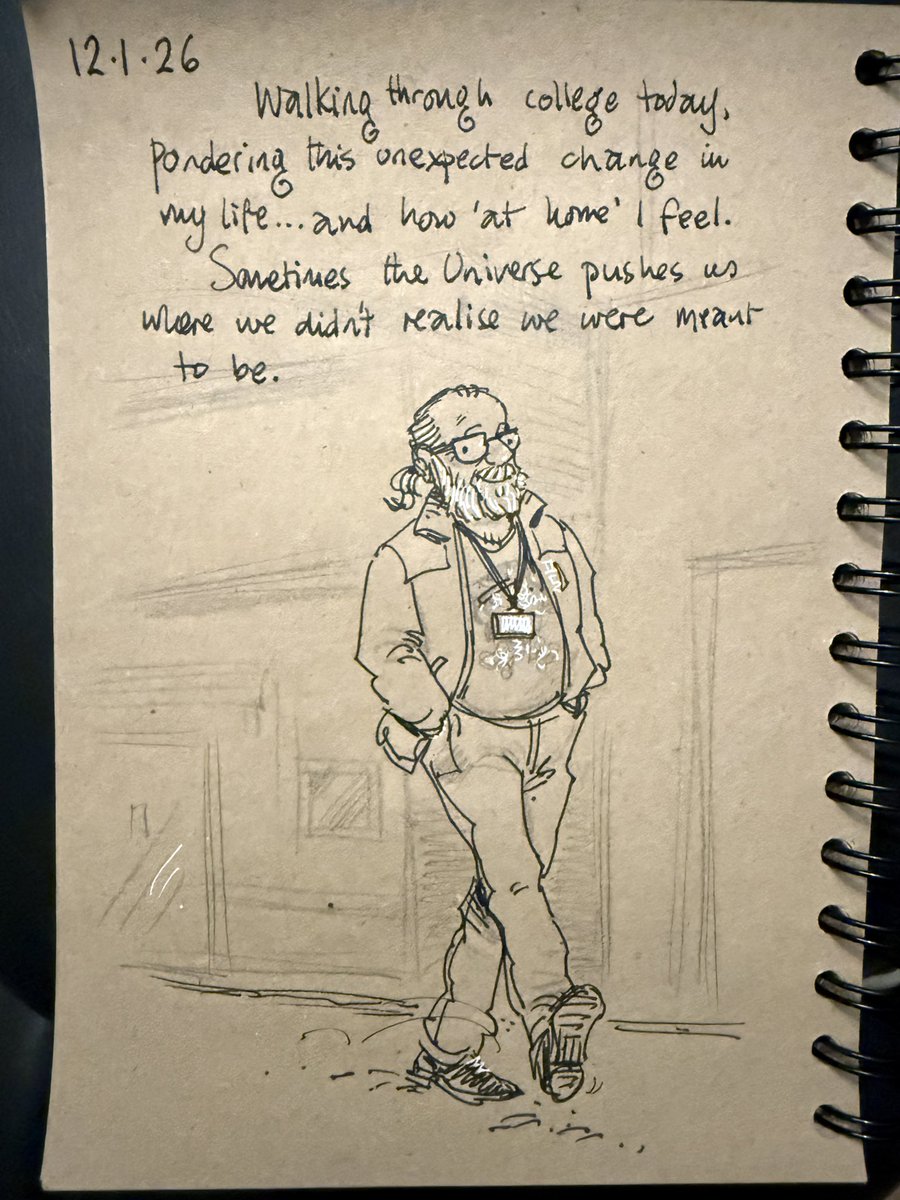 12.1.26
Walking through college today,
pondering this unexpected change in
my life...and how 'at home' I feel.
Sometimes the Universe pushes us
where we didn't realise we were meant
to be.